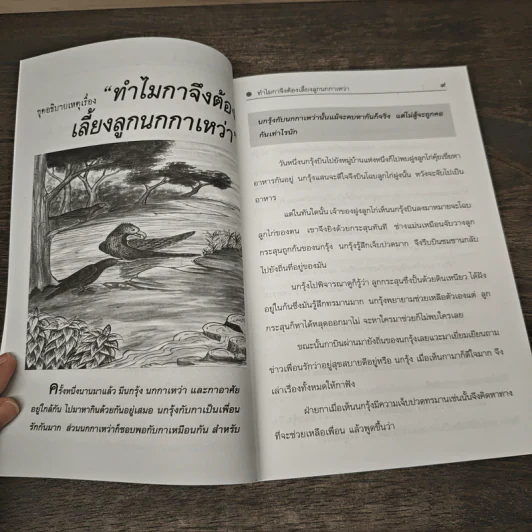 ขุดอธิบายเหตุเรื่อง
“ทำไมกาจึงต้อง
เลี้ยงลูกนกกาเหว่า”
ครั้งหนึ่งนานมาแล้ว มีนกรุ้ง นกกาเหว่า และกาอาศัย
อยู่ใกล้กัน ไปมาหากินด้วยกันอยู่เสมอ นกรุ้งกับกาเป็นเพื่อน
รักกันมาก ส่วนนกกาเหว่าก็ชอบพอกับกาเหมือนกัน สำหรับ
ทำไมกาจึงต้องเลี้ยงลูกนกกาเหว่า
๙
นกรุ้งกับนกกาเหว่านั้นแม้จะคบหากันก็จริง แต่ไม่สู้จะถูกคอ
กันเท่าไรนัก
วันหนึ่งนกรุ้งบินไปยังหมู่บ้านแห่งหนึ่งก็ไปพบฝูงลูกไก่คุ้ยเขี่ยหา
อาหารกันอยู่ นกรุ้งแสนจะดีใจจึงบินโฉบลูกไก่ฝูงนั้น หวังจะจับไปเป็น
อาหาร
แต่ในทันใดนั้น เจ้าของฝูงลูกไก่เห็นนกรุ้งบินลงมาหมายจะโฉบ
ลูกไก่ของตน เขาจึงยิงด้วยกระสุนทันที ช่างแม่นเหมือนจับวางลูก
กระสุนถูกก้นของนกรุ้ง นกรุ้งรู้สึกเจ็บปวดมาก จึงรีบบินซมซานกลับ
ไปยังถิ่นที่อยู่ของมัน
นกรุ้งไปพิจารณาดูก็รู้ว่า ลูกกระสุนซึ่งปั้นด้วยดินเหนียว ได้ฝัง
อยู่ในก้นซึ่งมันรู้สึกทรมานมาก นกรุ้งพยายามช่วยเหลือตัวเองแต่ ลูก
กระสุนก็หาได้หลุดออกมาไม่ จะหาใครมาช่วยก็ไม่พบใครเลย
ขณะนั้นกาบินผ่านมายังถิ่นของนกรุ้งเลยแวะมาเยี่ยมเยียนถาม
ข่าวเพื่อนรักว่าอยู่สุขสบายดีอยู่หรือ นกรุ้ง เมื่อเห็นกามาก็ดีใจมาก จึง
เล่าเรื่องทั้งหมดให้กาฟัง
ฝ่ายกาเมื่อเห็นนกรุ้งมีความเจ็บปวดทรมานเช่นนั้นจึงคิดหาทาง
ที่จะช่วยเหลือเพื่อน แล้วพูดขึ้นว่า